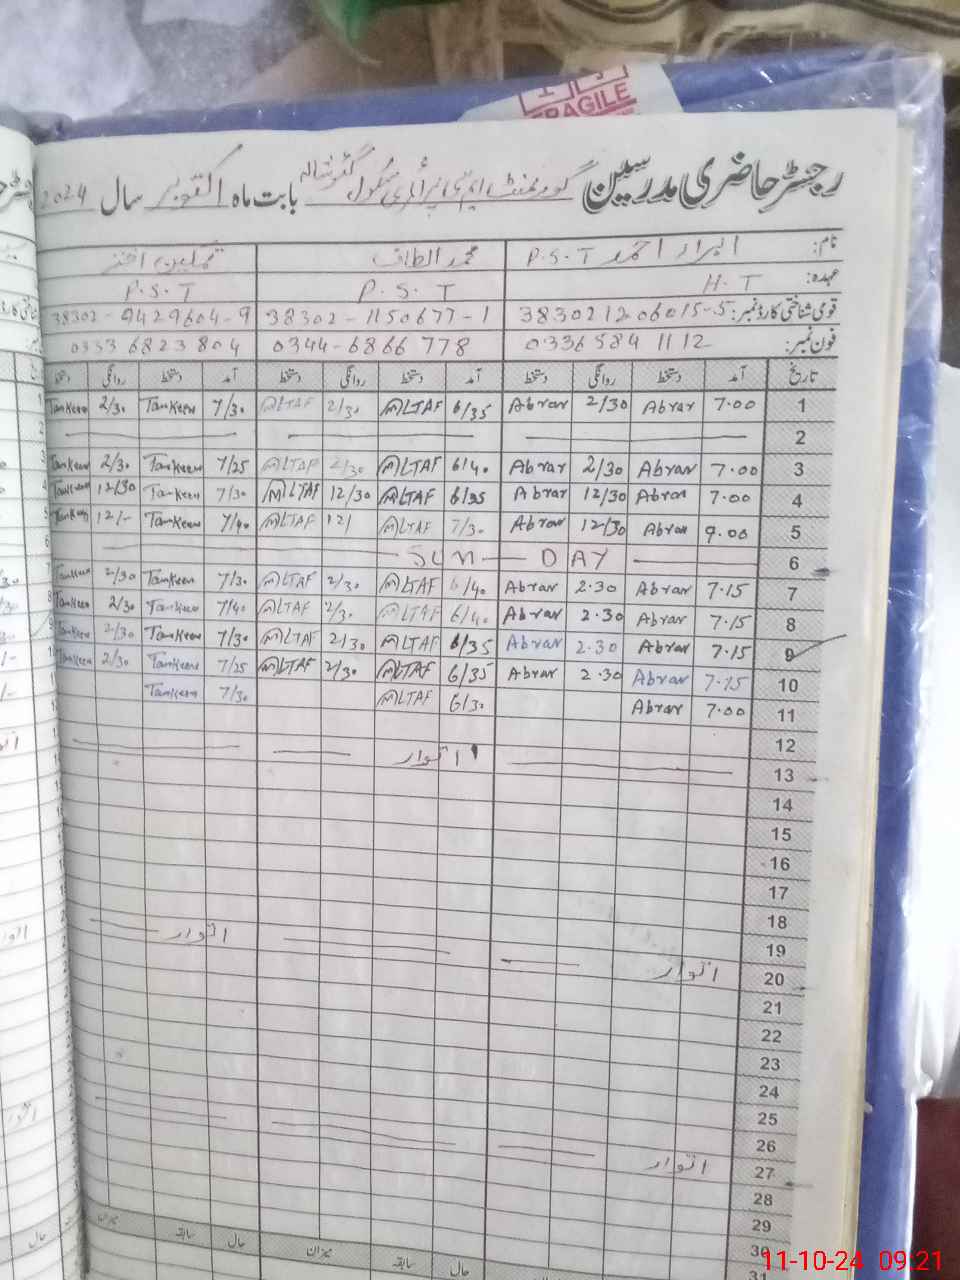 FRAGILE
رجسٹر حاضری مدرسین گورنمنٹ ایم سی پرائمری سکول گئوشالہ بابت ماہ اکتوبر سال 2024
نام: ابرار احمد P.S.T محمد الطاف تمکین اختر
عہدہ: H.T P.S.T P.S.T
قومی شناختی کارڈ نمبر: 383021206015-5 38302-1150677-1 38302-9429604-9
فون نمبر: 0336584 1112 0344-6866 778 0333 6823804
تاریخ آمد دستخط روانگی دستخط آمد دستخط روانگی دستخط آمد دستخط روانگی دستخط
1 7.00 Abrar 2/30 Abrar 6/35 ALTAF 2/30 ALTAF 7/30 Tamkeen 2/30 Tamkeen
2
3 7.00 Abrar 2/30 Abrar 6/40 ALTAF 2/30 ALTAF 7/25 Tamkeen 2/30 Tamkeen
4 7.00 Abrar 12/30 Abrar 6/35 ALTAF 12/30 ALTAF 7/30 Tamkeen 12/30 Tamkeen
5 9.00 Abrar 12/30 Abrar 7/30 ALTAF 12/ ALTAF 7/40 Tamkeen 12/- Tamkeen
6 SUN DAY
7 7.15 Abrar 2.30 Abrar 6/40 ALTAF 2/30 ALTAF 7/30 Tamkeen 2/30 Tamkeen
8 7.15 Abrar 2.30 Abrar 6/40 ALTAF 2/30 ALTAF 7/40 Tamkeen 2/30 Tamkeen
9 7.15 Abrar 2.30 Abrar 6/35 ALTAF 2/30 ALTAF 7/30 Tamkeen 2/30 Tamkeen
10 7.15 Abrar 2.30 Abrar 6/35 ALTAF 2/30 ALTAF 7/25 Tamkeen 2/30 Tamkeen
11 7.00 Abrar 6/30 ALTAF 7/30 Tamkeen
12
13 اتوار
14
15
16
17
18
19
20 اتوار اتوار
21
22
23
24
25
26
27 اتوار
28
29
30
31
حال سابقہ میزان حال سابقہ میزان
11-10-24 09:21